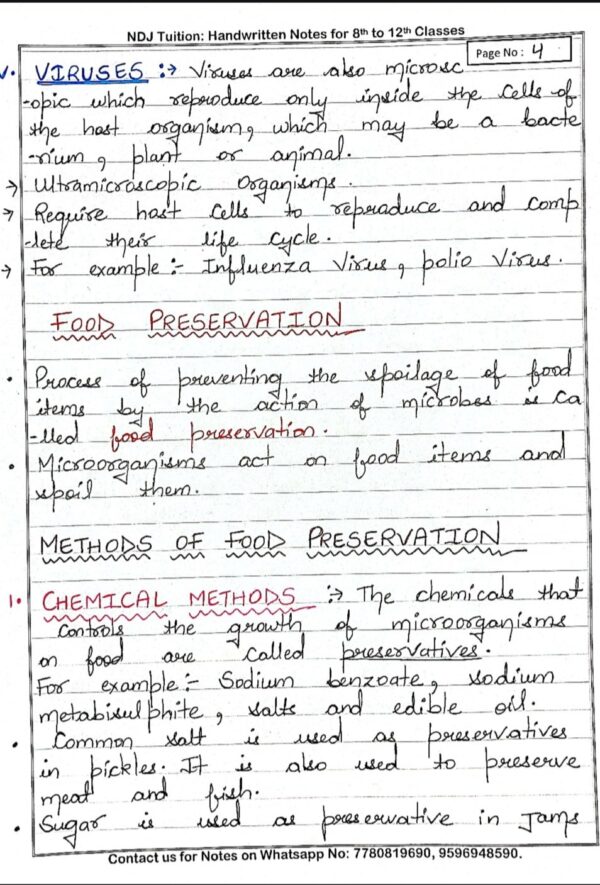 NDJ Tuition: Handwritten Notes for 8th to 12th Classes
Page No: 4
V. VIRUSES :→ Viruses are also microsc
-opic which reproduce only inside the cells of
the host organism, which may be a bacte
-rium, plant or animal.
→ Ultramicroscopic Organisms.
→ Require host cells to reproduce and comp
-lete their life cycle.
→ For example :- Influenza Virus, polio Virus.
FOOD PRESERVATION
• Process of preventing the spoilage of food
items by the action of microbes is ca
-lled food preservation.
• Microorganisms act on food items and
spoil them.
METHODS OF FOOD PRESERVATION
1. CHEMICAL METHODS :→ The chemicals that
controls the growth of microorganisms
on food are called preservatives.
For example :- Sodium benzoate, sodium
metabisulphite, salts and edible oil.
• Common salt is used as preservatives
in pickles. It is also used to preserve
meat and fish.
• Sugar is used as preservative in Jams
Contact us for Notes on Whatsapp No: 7780819690, 9596948590.